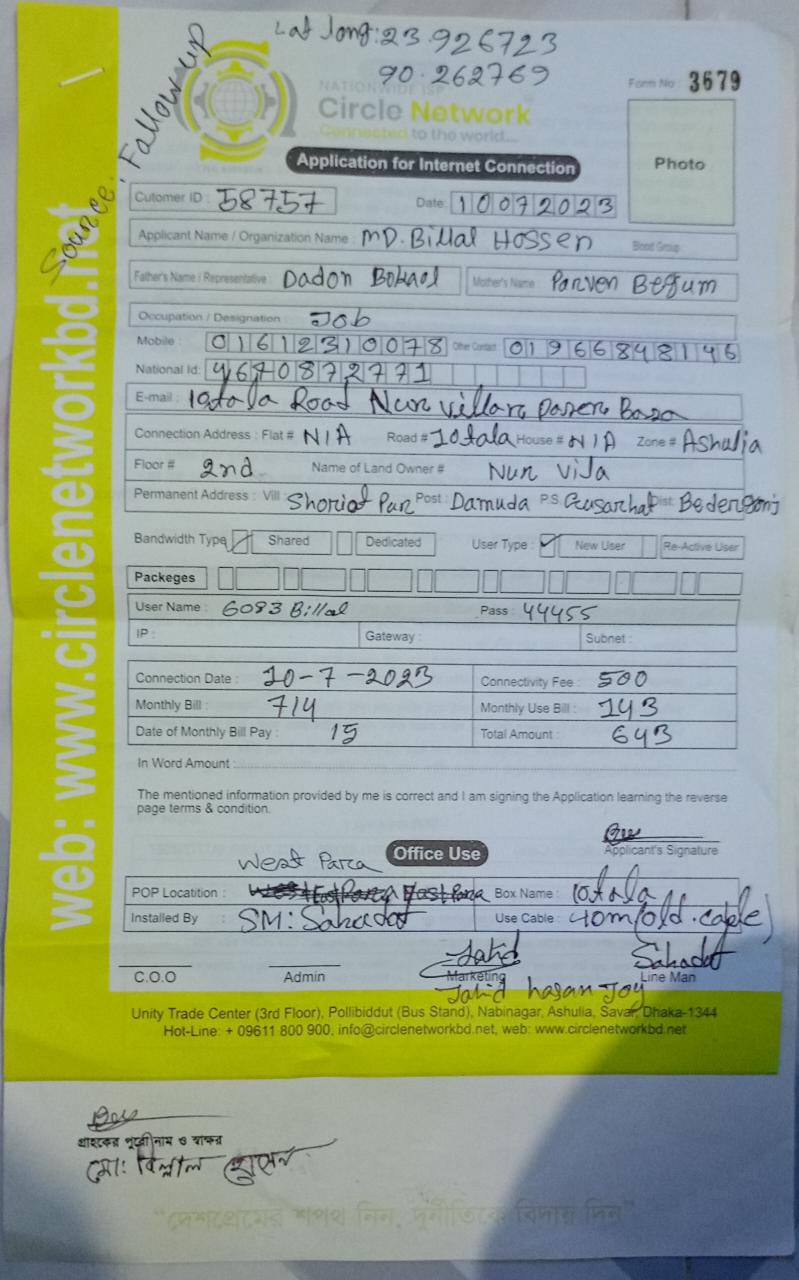 Lat long: 23.926723
90.262769
Source: Follow up
NATIONWIDE ISP
Circle Network
Connected to the world...
Form No : 3679
Photo
Application for Internet Connection
Cutomer ID : 58757 Date: 10072023
Applicant Name / Organization Name : MD. Billal Hossen Blood Group
Father's Name / Representative : Dadon Mother's Name Parven Begum
Occupation / Designation : Job
Mobile : 01612310078 Other Contact 01966848146
National Id: 4670872771
E-mail : 10tala Road Nur villar Basa
Connection Address : Flat # N/A Road # 10tala House # N/A Zone # Ashulia
Floor # 2nd Name of Land Owner # Nur Vila
Permanent Address : Vill Shoriat Pur Post : Damuda P.S Gusarhat Dist: Bedergonj
Bandwidth Type Shared Dedicated User Type : New User Re-Active User
Packeges
User Name : 6083 Billal Pass : 44455
IP : Gateway : Subnet :
Connection Date : 10-7-2023 Connectivity Fee : 500
Monthly Bill : 714 Monthly Use Bill : 143
Date of Monthly Bill Pay : 15 Total Amount : 643
In Word Amount :
The mentioned information provided by me is correct and I am signing the Application learning the reverse
page terms & condition.
Applicant's Signature
Office Use
West Para
POP Locatition : East Para Box Name : 10tala
Installed By : SM: Sahadat Use Cable : 40m (old.cable)
Jahid Sahadat
C.O.O Admin Marketing Line Man
Jahid hasan Joy
Unity Trade Center (3rd Floor), Pollibiddut (Bus Stand), Nabinagar, Ashulia, Savar, Dhaka-1344
Hot-Line: + 09611 800 900, info@circlenetworkbd.net, web: www.circlenetworkbd.net
web: www.circlenetworkbd.net
গ্রাহকের পুরো নাম ও স্বাক্ষর
মো: বিল্লাল হোসেন
“দেশপ্রেমের শপথ নিন, দুর্নীতিকে বিদায় দিন”